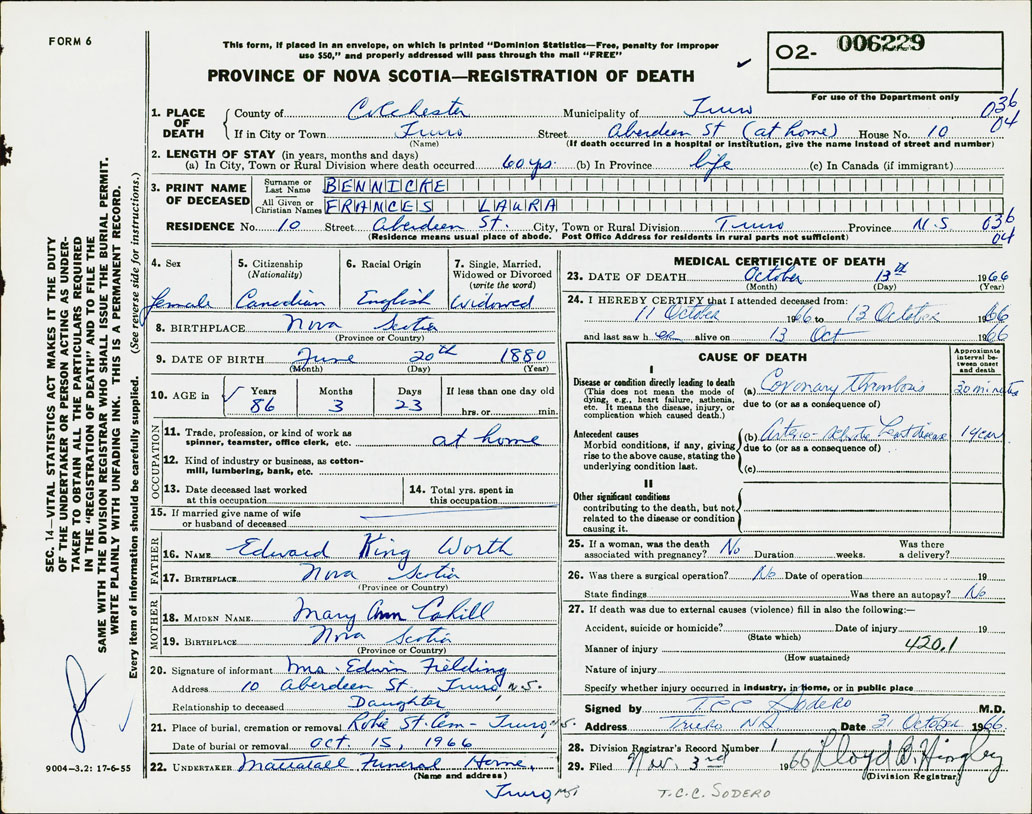 FORM 6
This form, if placed in an envelope, on which is printed "Dominion Statistics—Free, penalty for improper
use $50," and properly addressed will pass through the mail "FREE"
02- 006229
For use of the Department only
PROVINCE OF NOVA SCOTIA—REGISTRATION OF DEATH
036
04
1. PLACE OF DEATH
County of Colchester Municipality of Truro
If in City or Town Truro Street Aberdeen St (at home) House No. 10
(Name) (If death occurred in a hospital or institution, give the name instead of street and number)
2. LENGTH OF STAY (in years, months and days)
(a) In City, Town or Rural Division where death occurred 60 yrs. (b) In Province life (c) In Canada (if immigrant)
3. PRINT NAME OF DECEASED
Surname or Last Name BENNICKE
All Given or Christian Names FRANCES LAURA
RESIDENCE No. 10 Street Aberdeen St. City, Town or Rural Division Truro Province N.S. 036
04
(Residence means usual place of abode. Post Office Address for residents in rural parts not sufficient)
4. Sex
female
5. Citizenship
(Nationality)
Canadian
6. Racial Origin
English
7. Single, Married,
Widowed or Divorced
(write the word)
Widowed
8. BIRTHPLACE Nova Scotia
(Province or Country)
9. DATE OF BIRTH June 20th 1880
(Month) (Day) (Year)
10. AGE in
Years Months Days If less than one day old
86 3 23 hrs. or min.
OCCUPATION
11. Trade, profession, or kind of work as
spinner, teamster, office clerk, etc. at home
12. Kind of industry or business, as cotton-
mill, lumbering, bank, etc.
13. Date deceased last worked
at this occupation
14. Total yrs. spent in
this occupation
15. If married give name of wife
or husband of deceased
FATHER
16. NAME Edward King Worth
17. BIRTHPLACE Nova Scotia
(Province or Country)
MOTHER
18. MAIDEN NAME Mary Ann Cahill
19. BIRTHPLACE Nova Scotia
(Province or Country)
20. Signature of informant Mrs. Edwin Fielding
Address 10 Aberdeen St, Truro N.S.
Relationship to deceased Daughter
21. Place of burial, cremation or removal Robie St. Cem - Truro, N.S.
Date of burial or removal Oct. 15, 1966
22. UNDERTAKER Mattatall Funeral Home,
(Name and address)
Truro, N.S.
MEDICAL CERTIFICATE OF DEATH
23. DATE OF DEATH October 13th 1966
(Month) (Day) (Year)
24. I HEREBY CERTIFY that I attended deceased from:
11 October 1966 to 13 October 1966
and last saw h er alive on 13 Oct 1966
CAUSE OF DEATH
Approximate
interval be-
tween onset
and death
I
Disease or condition directly leading to death
(This does not mean the mode of
dying, e.g., heart failure, asthenia,
etc. It means the disease, injury, or
complication which caused death.)
(a) Coronary Thrombosis 30 minutes
due to (or as a consequence of)
Antecedent causes
Morbid conditions, if any, giving
rise to the above cause, stating the
underlying condition last.
(b) heart disease 1 year
due to (or as a consequence of)
(c)
II
Other significant conditions
contributing to the death, but not
related to the disease or condition
causing it.
25. If a woman, was the death
associated with pregnancy? No Duration weeks. Was there
a delivery?
26. Was there a surgical operation? No Date of operation 19
State findings Was there an autopsy? No
27. If death was due to external causes (violence) fill in also the following:—
Accident, suicide or homicide? Date of injury 19
(State which)
Manner of injury 420.1
(How sustained)
Nature of injury
Specify whether injury occurred in industry, in home, or in public place
Signed by T.C.C Sodero M.D.
Address Truro NS Date 31 October 1966
28. Division Registrar's Record Number 1
29. Filed Nov. 3rd 1966 Lloyd B. Hingley
(Division Registrar)
T.C.C. SODERO
SEC. 14—VITAL STATISTICS ACT MAKES IT THE DUTY
OF THE UNDERTAKER OR PERSON ACTING AS UNDER-
TAKER TO OBTAIN ALL THE PARTICULARS REQUIRED
IN THE "REGISTRATION OF DEATH" AND TO FILE THE
SAME WITH THE DIVISION REGISTRAR WHO SHALL ISSUE THE BURIAL PERMIT.
WRITE PLAINLY WITH UNFADING INK. THIS IS A PERMANENT RECORD.
Every item of information should be carefully supplied. (See reverse side for instructions.)
9004-3.2: 17-6-55